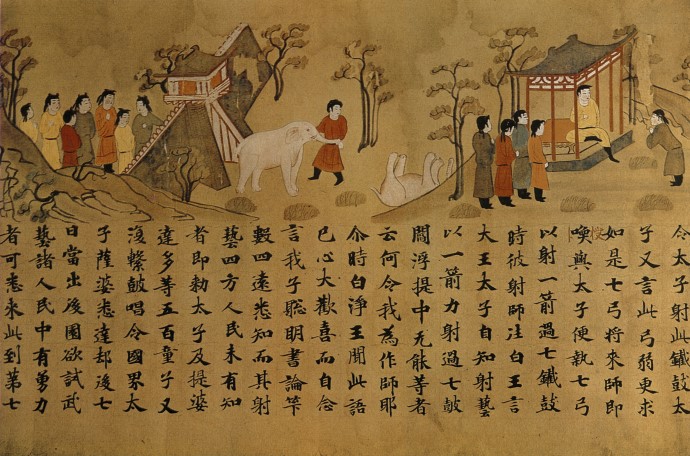 令太子射此鐵鼓太
子又言此弓弱更求
如是七弓將来師即
喚與太子便執七弓
以射一箭過七鐵鼓
時彼射師注白王言
大王太子自知射藝
以一箭力射過七皷
閻浮提中无能等者
云何令我為作師耶
尒時白淨王聞此語
已心大歡喜而自念
言我子聡明書論筭
數四遠悉知而其射
藝四方人民未有知
者即勑太子及提婆
達多等五百童子又
復擊皷唱令國界太
子薩婆悉達却後七
日當出後園欲試武
藝諸人民中有勇力
者可悉来此到第七